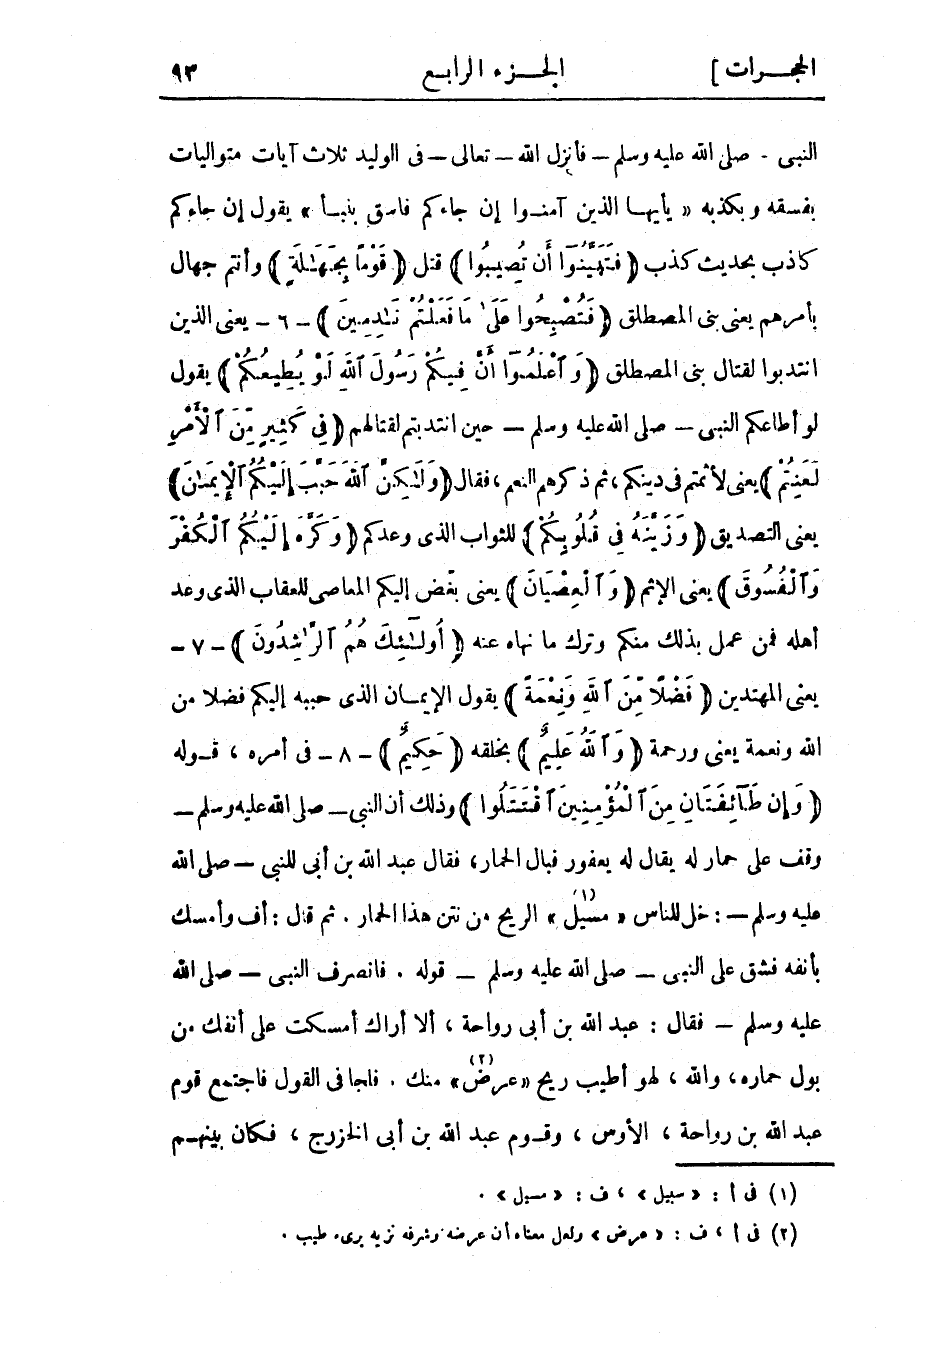 الحجرات ] الجزء الرابع ٩٣
النبى - صلى الله عليه وسلم – فأنزل الله – تعالى – فى الوليد ثلاث آيات متواليات
بفسقه وبكذبه « يأيها الذين آمنوا إن جاءكم فاسق بنبأ » يقول إن جاءكم
كاذب بحديث كذب ﴿ فَتَبَيَّنُوٓا أَن تُصِيبُوا ﴾ قتل ﴿ قَوْمًا بِجَهَـٰلَةٍ ﴾ وأنتم جهال
بأمرهم يعنى بنى المصطلق ﴿ فَتُصْبِحُوا عَلَىٰ مَا فَعَلْتُمْ نَـٰدِمِينَ ﴾ – ٦ – يعنى الذين
انتدبوا لقتال بنى المصطلق ﴿ وَٱعْلَمُوٓا أَنَّ فِيكُمْ رَسُولَ ٱللَّهِ لَوْ يُطِيعُكُمْ ﴾ يقول
لو أطاعكم النبى – صلى الله عليه وسلم – حين انتدبتم لقتالهم ﴿ فِى كَثِيرٍ مِّنَ ٱلْأَمْرِ
لَعَنِتُّمْ ﴾ يعنى لأثمتم فى دينكم ، ثم ذكرهم النعم ، فقال ﴿ وَلَـٰكِنَّ ٱللَّهَ حَبَّبَ إِلَيْكُمُ ٱلْإِيمَـٰنَ ﴾
يعنى التصديق ﴿ وَزَيَّنَهُ فِى قُلُوبِكُمْ ﴾ للثواب الذى وعدكم ﴿ وَكَرَّهَ إِلَيْكُمُ ٱلْكُفْرَ
وَٱلْفُسُوقَ ﴾ يعنى الإثم ﴿ وَٱلْعِصْيَانَ ﴾ يعنى بغض إليكم المعاصى للعقاب الذى وعد
أهله فمن عمل بذلك منكم وترك ما نهاه عنه ﴿ أُولَـٰٓئِكَ هُمُ ٱلرَّٰشِدُونَ ﴾ – ٧ –
يعنى المهتدين ﴿ فَضْلًا مِّنَ ٱللَّهِ وَنِعْمَةً ﴾ يقول الإيمان الذى حببه إليكم فضلا من
الله ونعمة يعنى ورحمة ﴿ وَٱللَّهُ عَلِيمٌ ﴾ بخلقه ﴿ حَكِيمٌ ﴾ – ٨ – فى أمره ، قوله
﴿ وَإِن طَآئِفَتَانِ مِنَ ٱلْمُؤْمِنِينَ ٱقْتَتَلُوا ﴾ وذلك أن النبى – صلى الله عليه وسلم –
وقف على حمار له يقال له يعفور فبال الحمار، فقال عبد الله بن أبى للنبى – صلى الله
عليه وسلم – : خل للناس « مسيل » (١) الريح من نتن هذا الحمار . ثم قال : أف وأمسك
بأنفه فشق على النبى – صلى الله عليه وسلم – قوله . فانصرف النبى – صلى الله
عليه وسلم – فقال : عبد الله بن أبى رواحة ، ألا أراك أمسكت على أنفك من
بول حماره، والله ، لهو أطيب ريح «عرض» (٢) منك . فلجا فى القول فاجتمع قوم
عبد الله بن رواحة ، الأوس ، وقوم عبد الله بن أبى الخزرج ، فكان بينهم
(١) فى أ : « سبيل » ، ف : « مسيل » .
(٢) فى أ ، ف : « عرض » ولعل معناه أن عرضه وشرفه نزيه برىء طيب .